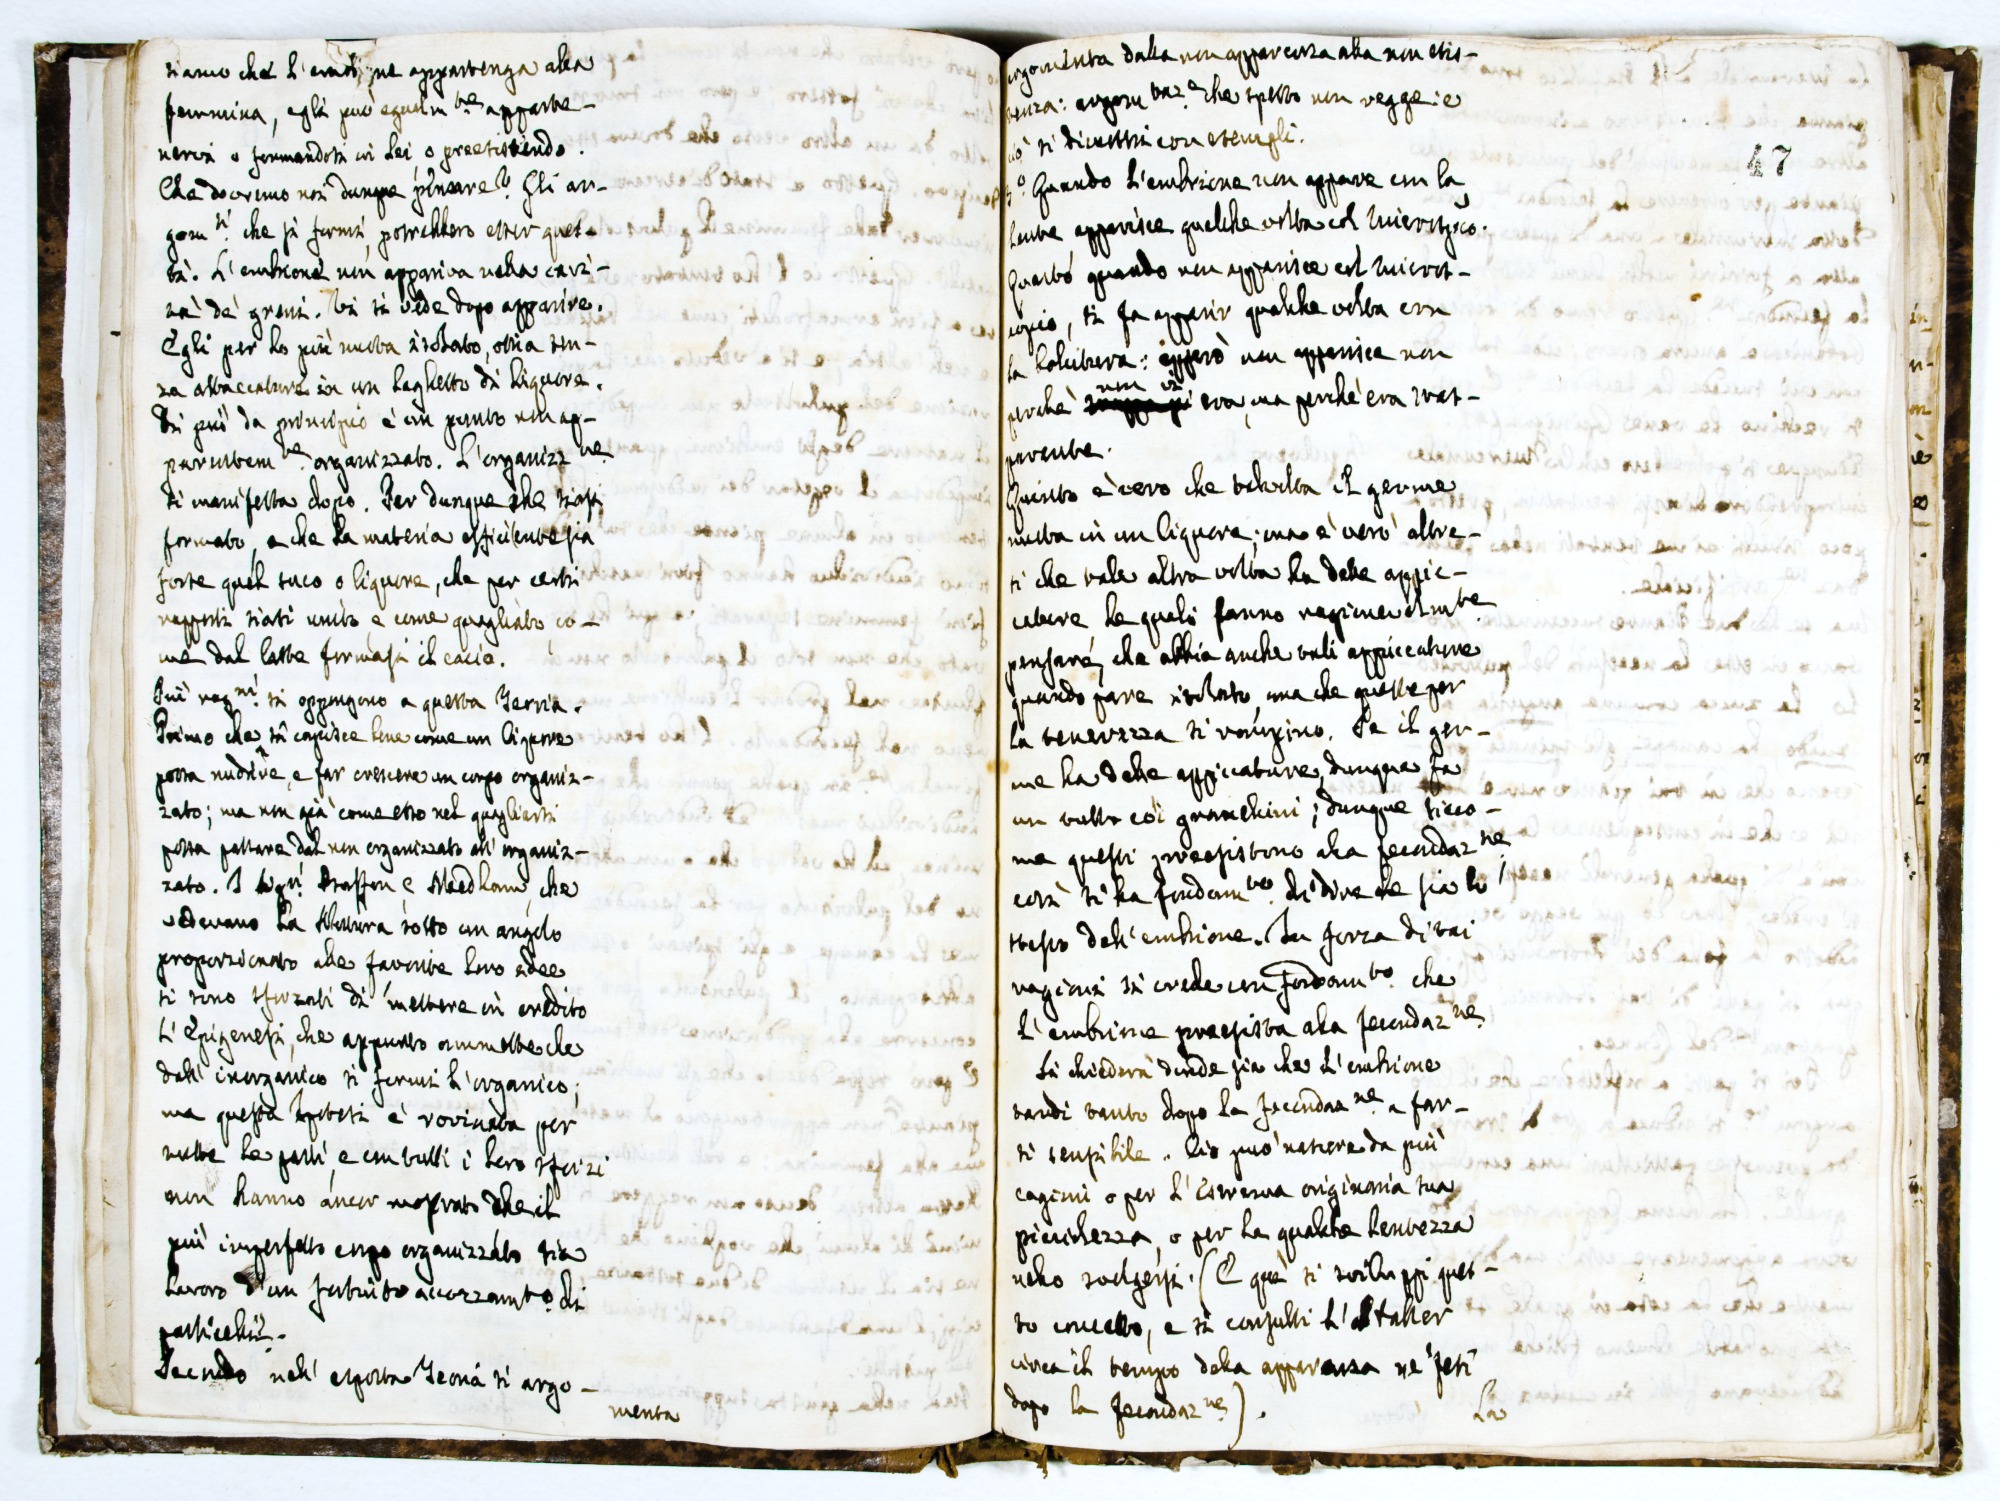 siamo che l'embrione appartenga alla
femmina, egli può egualm.te apparte-
nervi o formandosi in lei o preesistendo.
Che dovremo noi dunque pensare? Gli ar-
gom.ti che si formi, potrebbero esser ques-
ti. L'embrione non appariva nella cavi-
tà de' grani. Vi si vede dopo apparire.
Egli per lo più nuota isolato, ossia sen-
za attaccature in un laghetto di liquore.
Di più da principio è un punto non ap-
parentem.te organizzato. L'organizz.ne
si manifesta dopo. Par dunque che siasi
formato, e che la materia efficiente sia
forse quel suco o liquore, che per certi
rapporti siasi unito e come quagliato co-
me dal latte formasi il cacio.
Più rag.ni si oppongono a questa Teoria.
Primo che si capisce bene come un liquore
possa nudrire, e far crescere un corpo organiz-
zato; ma non già come esso nel quagliarsi
possa passare dal non organizzato all'organiz-
zato. I Sig.ri Buffon, e Needham, che
vedevano la Natura sotto un angolo
proporzionato alle favorite loro idee
si sono sforzati di mettere in credito
l'Epigenesi, che appunto ammette che
dall'inorganico si formi l'organico;
ma questa Ipotesi è rovinata per
tutte le parti, e con tutti i loro sforzi
non hanno ancor mostrato che il
più imperfetto corpo organizzato sia
lavoro d'un fortuito accozzam.to di
particelle.
Secondo nell'esposta Teoria si argo-
menta
argomenta dalla non apparenza alla non esis-
tenza: argom.taz.e che spesso non regge: e
ciò si dimostri con esempli.
3.o Quando l'embrione non appare con la
lente apparisce qualche volta col Microscopio.
Quarto quando non apparisce col Micros-
copio, si fa apparir qualche volta con
la coloritura: epperò non apparisce non
perchè non vi era, ma perchè era tras-
parente.
Quinto è vero che talvolta il germe
nuota in un liquore; ma è vero altre-
sì che tale altra volta ha delle appic-
cature le quali fanno ragionevolm.te
pensare, che abbia anche tali appiccature
quando pare isolato, ma che queste per
la tenerezza si rompino. Se il ger-
me ha delle appiccature, dunque fa
un tutto coi granellini; dunque sicco-
me questi preesistono alla fecondaz.ne
così si ha fondam.to di dire che sia lo
stesso dell'embrione. In forza di tai
ragioni si crede con fondam.to che
l'embrione preesista alla fecondaz.ne.
Si chiederà donde sia che l'embrione
tardi tanto dopo la fecondaz.ne a far-
si sensibile. Ciò può nascere da più
cagioni o per l'estrema originaria sua
picciolezza, o per la qualche lentezza
nello svolgersi. (E quà si sviluppi ques-
to concetto, e si consulti l'Haller
circa il tempo della apparenza ne' feti
dopo la fecondaz.ne).
La
47